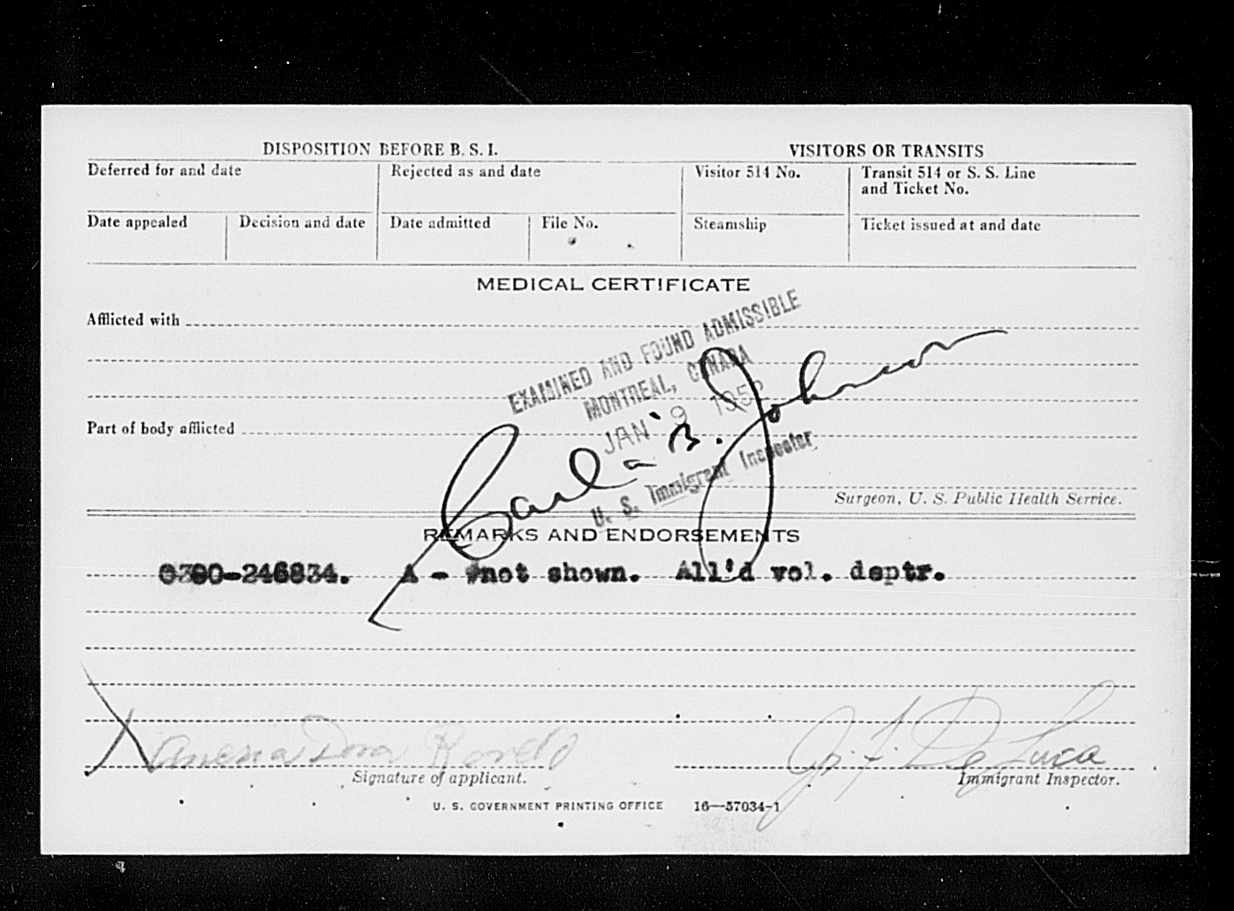 DISPOSITION BEFORE B. S. I.
VISITORS OR TRANSITS
Deferred for and date
Rejected as and date
Visitor 514 No.
Transit 514 or S. S. Line
and Ticket No.
Date appealed
Decision and date
Date admitted
File No.
Steamship
Ticket issued at and date
MEDICAL CERTIFICATE
Afflicted with
EXAMINED AND FOUND ADMISSIBLE
MONTREAL, CANADA
JAN 9
Part of body afflicted
B. Johnson
U. S. Immigrant Inspector
Surgeon, U. S. Public Health Service.
REMARKS AND ENDORSEMENTS
0300-246834. A - #not shown. All'd vol. deptr.
Dora
De Luca
Signature of applicant.
Immigrant Inspector.
U. S. GOVERNMENT PRINTING OFFICE 16—57034-1